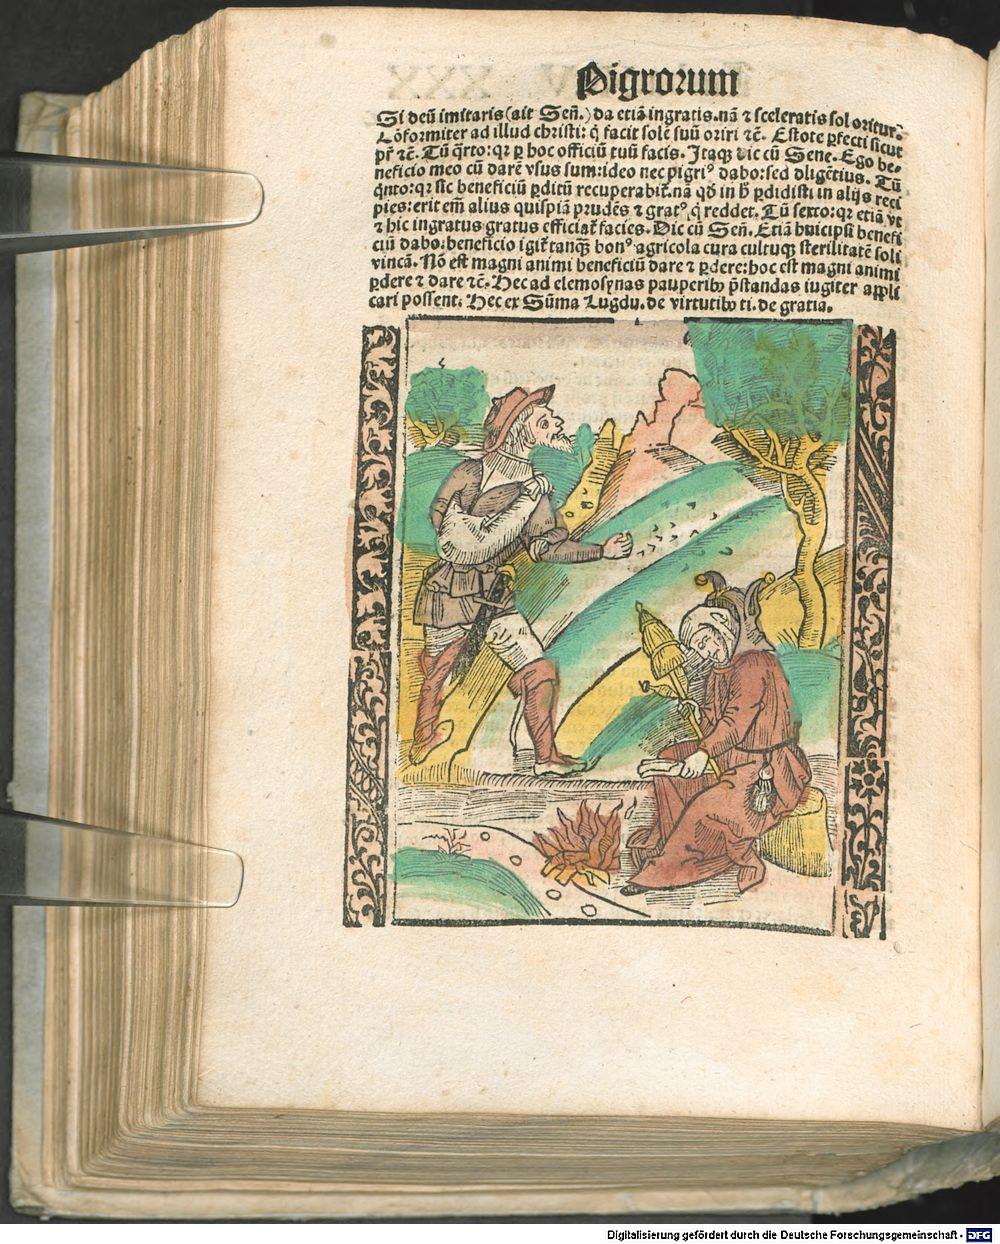 Pigrorum
Si deū imitaris (ait Señ.) da etiā ingratis. nā ⁊ sceleratis sol oritur.
Cōformiter ad illud christi: q̇ facit solē suū oriri ⁊c̄. Estote ꝑfecti sicut
pr̄ ⁊c̄. Tū q̇rto: qꝛ ꝑ hoc officiū tuū facis. Itaqꝫ dic cū Sene. Ego be-
neficio meo cū darē vsus sum: ideo nec pigriꝰ dabo: sed dligētius. Tū
q̇nto: qꝛ sic beneficiū ꝑditū recuperabit᷑. nā qd̄ in h̄ ꝑdidisti in alijs reci
pies: erit em̄ alius quispiā prudēs ⁊ gratꝰ q̇ reddet. Tū sexto: qꝛ etiā vt
⁊ hic ingratus gratus efficiat᷑ facies. Dic cū Señ. Etiā huicipsi benefi
ciū dabo: beneficio igit᷑ tanqꝫ̄ bonꝰ agricola cura cultuqꝫ sterilitatē soli
vincā. Nō est magni animi beneficiū dare ⁊ ꝑdere: hoc est magni animi
ꝑdere ⁊ dare ⁊c̄. Hec ad elemosynas pauperibꝫ p̄standas iugiter appli
cari possent. Hec ex Sūma Lugdu. de virtutibꝫ ti. de gratia.
Digitalisierung gefördert durch die Deutsche Forschungsgemeinschaft - DFG